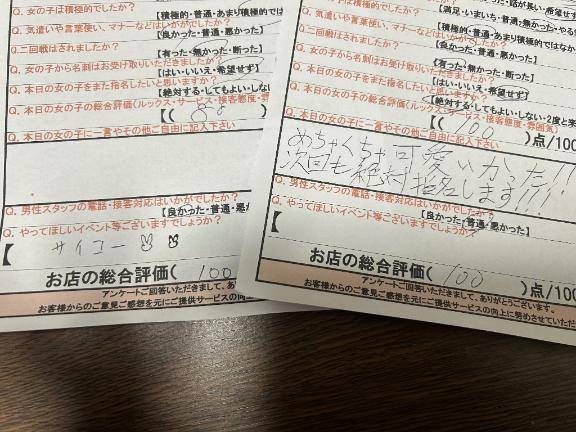 Q. 女の子は積極的でしたか?
【積極的・普通・あまり積極的では
Q. 気遣いや言葉使い、マナーなどはいかがでしたか?
【良かった・普通・悪かった】
Q. 二回戦はされましたか?
【有った・無かった・断った】
Q. 女の子から名刺はお受け取りいただきましたか?
【はい・いいえ・希望せず】
Q. 本日の女の子をまた指名したいと思いますか?
【絶対する・してもよい・しない
Q. 本日の女の子の総合評価(ルックス・サービス・接客態度・雰
【(
Q. 本日の女の子に一言やその他ご自由に記入下さい
Q. 男性スタッフの電話・接客対応はいかがでしたか?
【良かった・普通・悪か
Q. やってほしいイベント等ございますでしょうか?
【 サイコー
お店の総合評価( 100
アンケートご回答いただきまして、あり
お客様からのご意見ご感想を元にご提供サービスの向上
Q. 女の子は積極的でしたか?
【積極的・普通・あまり積極的ではなか
Q. 気遣いや言葉使い、マナーなどはいかがでしたか?
【良かった・普通・悪かった】
Q. 二回戦はされましたか?
【有った・無かった・断った】
Q. 女の子から名刺はお受け取りいただきましたか?
【はい・いいえ・希望せず】
Q. 本日の女の子をまた指名したいと思いますか?
【絶対する・してもよい・しない・2度と来
Q. 本日の女の子の総合評価(ルックス・サービス・接客態度・雰囲気)
【( 100 )点/100
Q. 本日の女の子に一言やその他ご自由に記入下さい
めちゃくちゃ可愛いかった!!
次回も絶対指名します!!!
Q. 男性スタッフの電話・接客対応はいかがでしたか?
【良かった・普通・悪かった】
Q. やってほしいイベント等ございますでしょうか?
【
お店の総合評価( 100 )点/100
アンケートご回答いただきまして、ありがとうございます。
お客様からのご意見ご感想を元にご提供サービスの向上に努めさせていただ